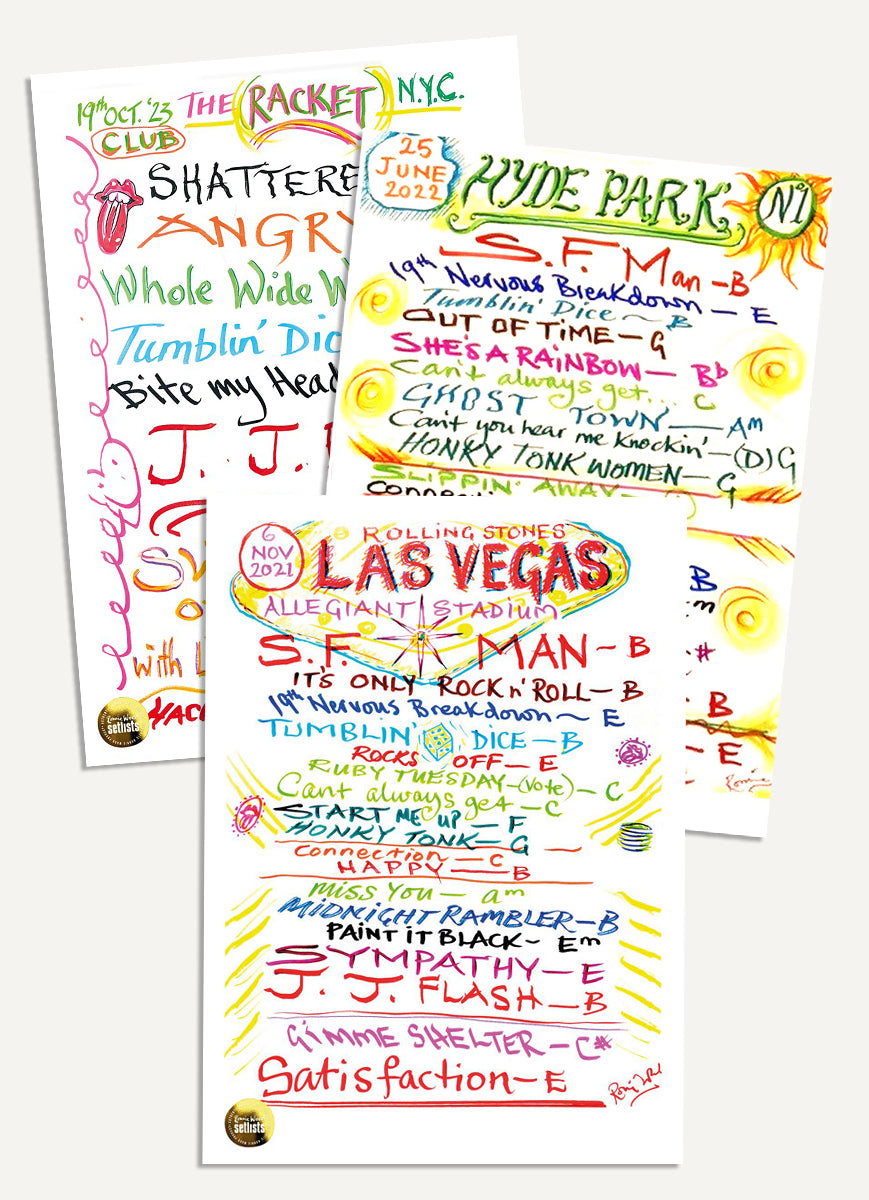 19th OCT. '23 THE (RACKET) N.Y.C.
CLUB
SHATTERE
ANGRY
Whole Wide W
Tumblin' Dic
Bite my Head
J. J.
with L
HAC
Ronnie Wood
setlists
25
JUNE
2022
HYDE PARK
Nº1
S.F. Man - B
19th Nervous Breakdown - E
Tumblin' Dice ~ B
OUT OF TiME - G
SHE'S A RAiNBOW - Bb
Can't always get... C
GHOST TOWN - Am
Can't you hear me Knockin' - (D) G
HONKY TONK WOMEN - G
SLIPPIN' AWAY -
B
m
#
B
E
Ronnie
6
NOV
2021
ROLLiNG STONES
LAS VEGAS
ALLEGIANT STADiUM
S.F. MAN ~ B
IT'S ONLY ROCK n' ROLL - B
19th Nervous Breakdown ~ E
TUMBLIN' DiCE - B
ROCKS OFF - E
RUBY TUESDAY - (Vote) - C
Cant always get - C
START ME UP - F
HONKY TONK - G
Connection - C
HAPPY - B
MiSS YOU - am
MiDNiGHT RAMBLER - B
PAiNT iT BLACK ~ Em
SYMPATHY - E
J. J. FLASH - B
GiMME SHELTER - C#
Satisfaction - E
Ronnie Wood
setlists